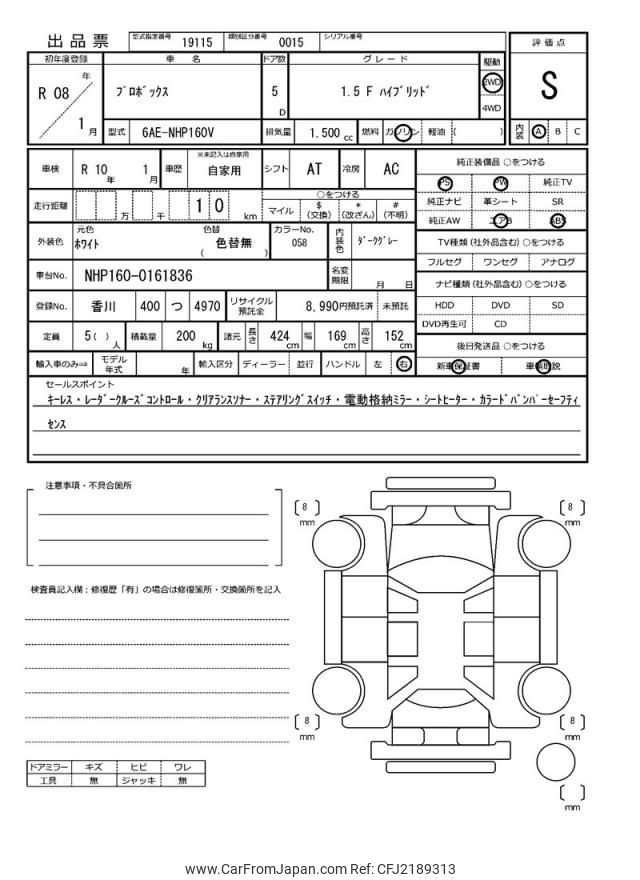 出品票 型式指定番号 19115 類別区分番号 0015 シリアル番号
評価点
初年度登録 車 名 ドア数 グレード 駆動
R 08 年 1 月
プロボックス 5 D 1.5 F ハイブリッド 2WD 4WD
S
型式 6AE-NHP160V 排気量 1.500 cc 燃料 ガソリン 軽油 ( )
内装 A B C
車検 R 10 年 1 月 車歴 ※未記入は自家用 自家用 シフト AT 冷房 AC
純正装備品 ○をつける
PS PW 純正TV
純正ナビ 革シート SR
純正AW エアB ABS
走行距離 万 千 1 0 km
○をつける
マイル $ (交換) * (改ざん) # (不明)
外装色 元色 ホワイト 色替 ( 色替無 ) カラーNo. 058 内装色 ダークグレー
TV種類 (社外品含む) ○をつける
フルセグ ワンセグ アナログ
車台No. NHP160-0161836 名変期限 月 日
ナビ種類 (社外品含む) ○をつける
HDD DVD SD
DVD再生可 CD
登録No. 香川 400 つ 4970 リサイクル預託金 8,990円預託済 未預託
定員 5 ( ) 人 積載量 200 kg 諸元 長さ 424 cm 幅 169 cm 高さ 152 cm
後日発送品 ○をつける
新車保証書 車輌取説
輸入車のみ⇒ モデル年式 年 輸入区分 ディーラー 並行 ハンドル 左 右
セールスポイント
キーレス・レーダークルーズコントロール・クリアランスソナー・ステアリングスイッチ・電動格納ミラー・シートヒーター・カラードバンパーセーフティ
センス
注意事項・不具合箇所
[ 8 ] mm
[ 8 ] mm
検査員記入欄：修復歴「有」の場合は修復箇所・交換箇所を記入
[ 8 ] mm
[ 8 ] mm
ドアミラー キズ ヒビ ワレ
工具 無 ジャッキ 無
[ ] mm
www.CarFromJapan.com Ref: CFJ2189313